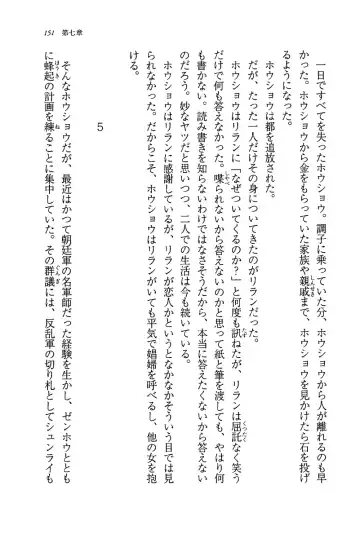 151 第七章
一日ですべてを失ったホウショウ。調子に乗っていた分、ホウショウから人が離れるのも早
かった。ホウショウから金をもらっていた家族や親戚まで、ホウショウを見かけたら石を投げ
るようになった。
ホウショウは都を追放された。
だが、たった一人だけその身についてきたのがリランだった。
ホウショウはリランに「なぜついてくるのか？」と何度も訊ねたが、リランは屈託なく笑う
だけで何も答えなかった。喋られないから答えないのかと思って紙と筆を渡しても、やはり何
も書かない。読み書きを知らないわけではなさそうだから、本当に答えたくないから答えない
のだろう。妙なヤツだと思いつつ、二人での生活は今も続いている。
だからこそ、ホウショウはリランに感謝しているが、リランが恋人かというとなかなかそういう目では見
られなかった。だからこそ、ホウショウはリランがいても平気で娼婦を呼べるし、他の女を抱
ける。
5
そんなホウショウだが、最近はかつて朝廷軍の名軍師だった経験を生かし、ゼンホウととも
に蜂起の計画を練ることに集中していた。その群議には、反乱軍の切り札としてシュンライも